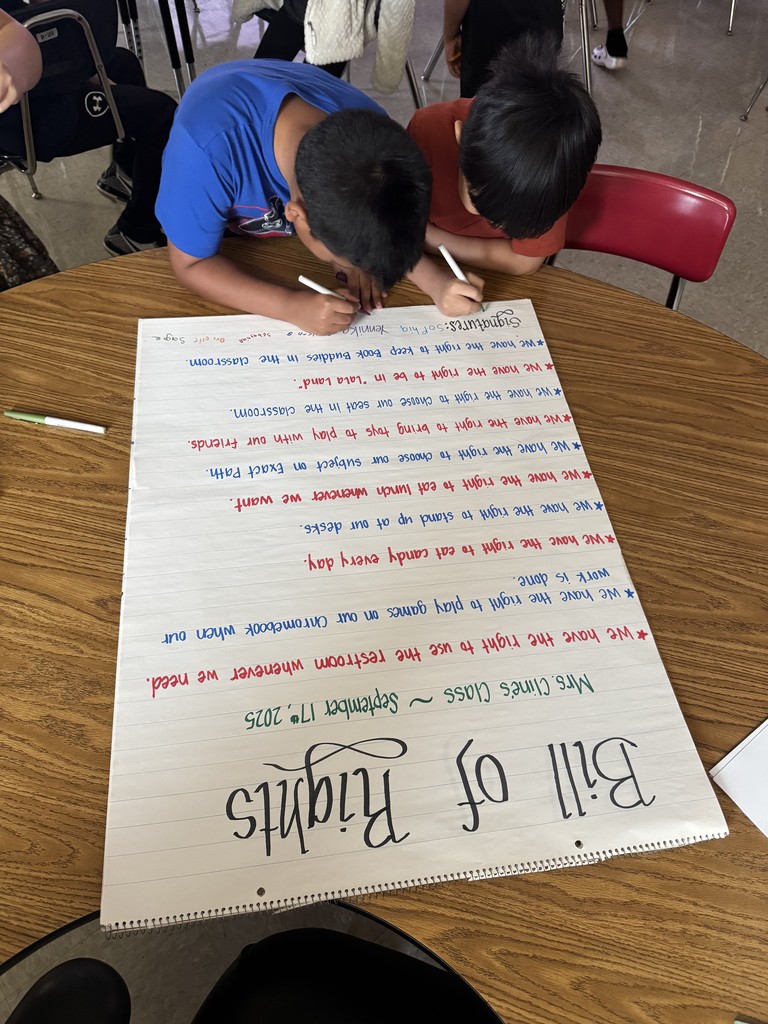 Bill of Rights
Mrs. Cline's Class ~ September 17th, 2025
* We have the right to use the restroom whenever we need.
* We have the right to play games on our Chromebook when our
work is done.
* We have the right to eat candy every day.
* We have the right to stand up at our desks.
* We have the right to eat lunch whenever we want.
* We have the right to choose our subject on Exact Path.
* We have the right to bring toys to play with our friends.
* We have the right to choose our seat in the classroom.
* We have the right to be in "Lala Land".
* We have the right to keep Book Buddies in the classroom.
Signatures: Sofhia Yennika Sage